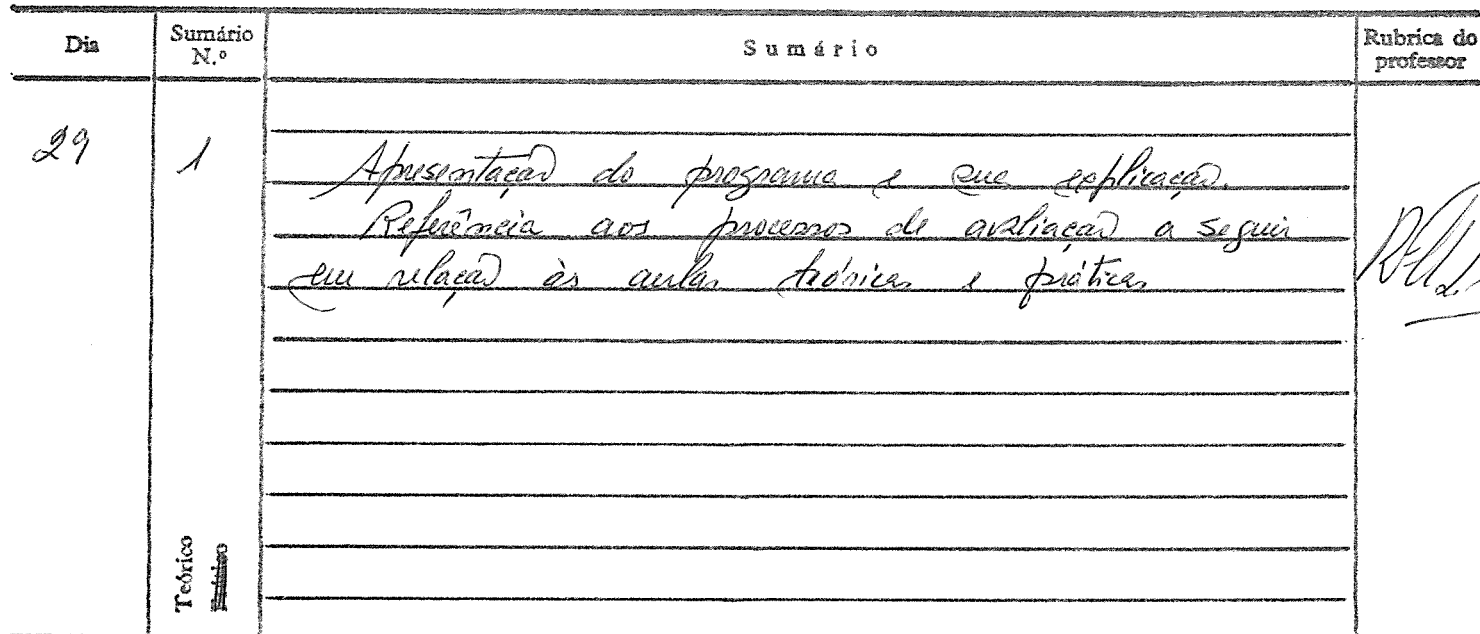 Dia
Sumário N.º
Sumário
Rubrica do professor
29
1
Apresentação do programa e sua explicação.
Referência aos processos de avaliação a seguir
em relação às aulas teóricas e práticas
Teórico